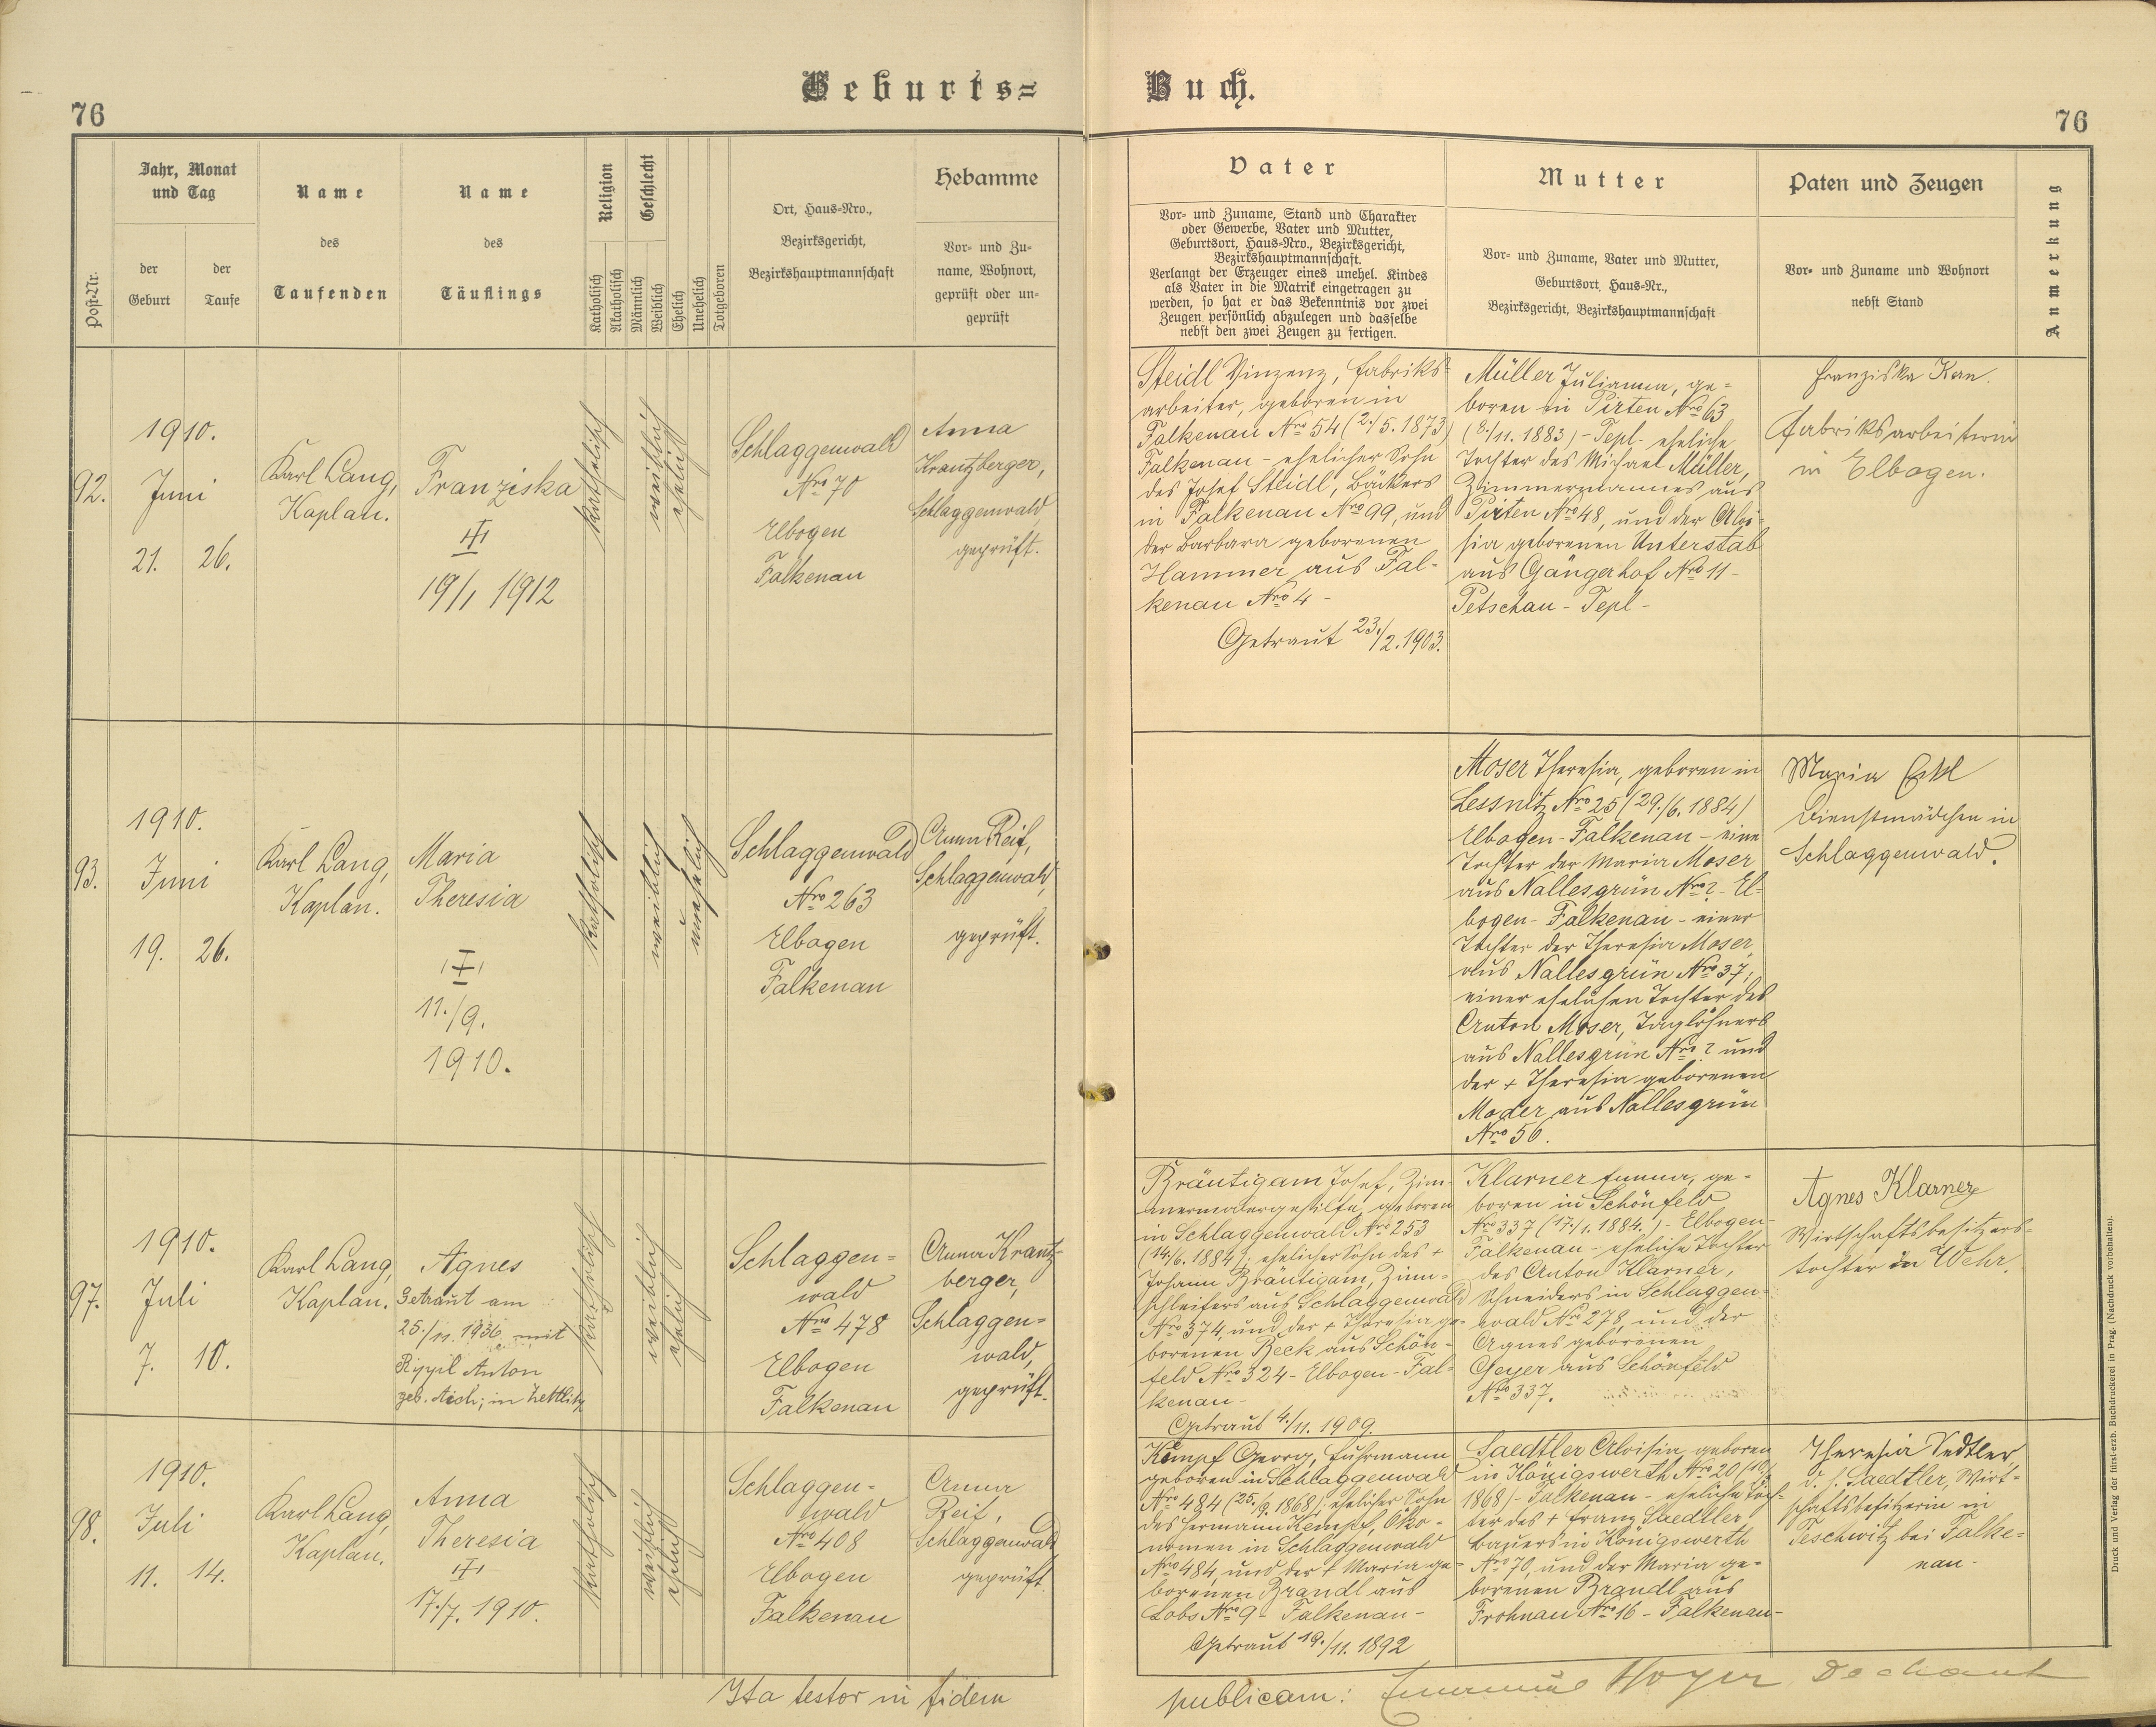 Geburts=
Buch.
76
76
Post-Nr.
Jahr, Monat
und Tag
der
Geburt
der
Taufe
Name
des
Taufenden
Name
des
Täuflings
Religion
Katholisch
Akatholisch
Geschlecht
Männlich
Weiblich
Ehelich
Unehelich
Totgeboren
Ort, Haus-Nro.,
Bezirksgericht,
Bezirkshauptmannschaft
Hebamme
Vor- und Zu-
name, Wohnort,
geprüft oder un-
geprüft
Vater
Vor- und Zuname, Stand und Charakter
oder Gewerbe, Vater und Mutter,
Geburtsort, Haus-Nro., Bezirksgericht,
Bezirkshauptmannschaft.
Verlangt der Erzeuger eines unehel. Kindes
als Vater in die Matrik eingetragen zu
werden, so hat er das Bekenntnis vor zwei
Zeugen persönlich abzulegen und dasselbe
nebst den zwei Zeugen zu fertigen.
Mutter
Vor- und Zuname, Vater und Mutter,
Geburtsort, Haus-Nr.,
Bezirksgericht, Bezirkshauptmannschaft
Paten und Zeugen
Vor- und Zuname und Wohnort
nebst Stand
Anmerkung
92.
1910.
Juni
21. 26.
Karl Lang,
Kaplan.
Franziska
19/1 1912
katholisch
weiblich
ehelich
Schlaggenwald
Nro 70
Elbogen
Falkenau
Anna
Krantzberger,
Schlaggenwald,
geprüft.
Steidl Vinzenz, Fabriks-
arbeiter, geboren in
Falkenau Nro 54 (2./5. 1873)
Falkenau - ehelicher Sohn
des Josef Steidl, Bäckers
in Falkenau Nro 99, und
der Barbara geborenen
Hammer aus Fal-
kenau Nro 4 -
Getraut 23./2. 1903.
Müller Julianna, ge-
boren in Pirten Nro 63
(8./11. 1883) - Tepl - eheliche
Tochter des Michael Müller,
Zimmermannes aus
Pirten Nro 48, und der Aloi-
sia geborenen Unterstab
aus Gängerhof Nro 11 -
Petschau - Tepl -
Franziska
Fabriksarbeiterin
in Elbogen.
93.
1910.
Juni
19. 26.
Karl Lang,
Kaplan.
Maria
Theresia
11./9.
1910.
katholisch
weiblich
unehelich
Schlaggenwald
Nro 263
Elbogen
Falkenau
Anna Reif,
Schlaggenwald,
geprüft.
Moser Theresia, geboren in
Lessnitz Nro 25 (29./6. 1884)
Elbogen - Falkenau - eine
Tochter der Maria Moser
aus Nallesgrün Nro ? - El-
bogen - Falkenau - einer
Tochter der Theresia Moser
aus Nallesgrün Nro 37,
einer ehelichen Tochter des
Anton Moser, Taglöhners
aus Nallesgrün Nro ? und
der + Theresia geborenen
Moder aus Nallesgrün
Nro 56.
Maria
Dienstmädchen in
Schlaggenwald.
97.
1910.
Juli
7. 10.
Karl Lang,
Kaplan.
Agnes
Getraut am
25./11. 1936 mit
Anton
geb. Aich; in Zettlitz
katholisch
weiblich
ehelich
Schlaggen-
wald
Nro 478
Elbogen
Falkenau
Anna Krantz-
berger,
Schlaggen-
wald,
geprüft.
Bräutigam Josef, Zim-
mermalergehilfe, geboren
in Schlaggenwald Nro 253
(14./6. 1884), ehelicher Sohn des +
Johann Bräutigam, Zinn-
schleifers aus Schlaggenwald
Nro 374, und der + Theresia ge-
borenen Beck aus Schön-
feld Nro 324 - Elbogen - Fal-
kenau -
Getraut 4./11. 1909.
Klarner Emma, ge-
boren in Schönfeld
Nro 337 (17./1. 1884.) - Elbogen -
Falkenau - eheliche Tochter
des Anton Klarner,
Schneiders in Schlaggen-
wald Nro 278, und der
Agnes geborenen
Geyer aus Schönfeld
Nro 337.
Agnes Klarner
Wirtschaftsbesitzers-
tochter in Wehr.
98.
1910.
Juli
11. 14.
Karl Lang,
Kaplan.
Anna
Theresia
17./7. 1910.
katholisch
weiblich
ehelich
Schlaggen-
wald
Nro 408
Elbogen
Falkenau
Anna
Reif,
Schlaggenwald
geprüft.
Kempf Georg, Fuhrmann
geboren in Schlaggenwald
Nro 484 (25./9. 1868), ehelicher Sohn
des Hermann Kempf, Öko-
nomen in Schlaggenwald
Nro 484, und der + Maria ge-
borenen Brandl aus
Lobs Nro 9 - Falkenau -
Getraut 19./11. 1892
Saedtler Aloisia, geboren
in Königswerth Nro 20
1868) - Falkenau - eheliche Toch-
ter des + Franz Saedtler
Bauers in Königswerth
Nro 70, und der Maria ge-
borenen Brandl aus
Frohnau Nro 16 - Falkenau -
Theresia Sedtler,
d. h. Saedtler, Wirt-
schaftsbesitzerin in
Teschwitz bei Falke-
nau -
Ita testor in fidem
publicam: Hoyer Dechant
Druck und Verlag der fürst-erzb. Buchdruckerei in Prag. (Nachdruck vorbehalten).